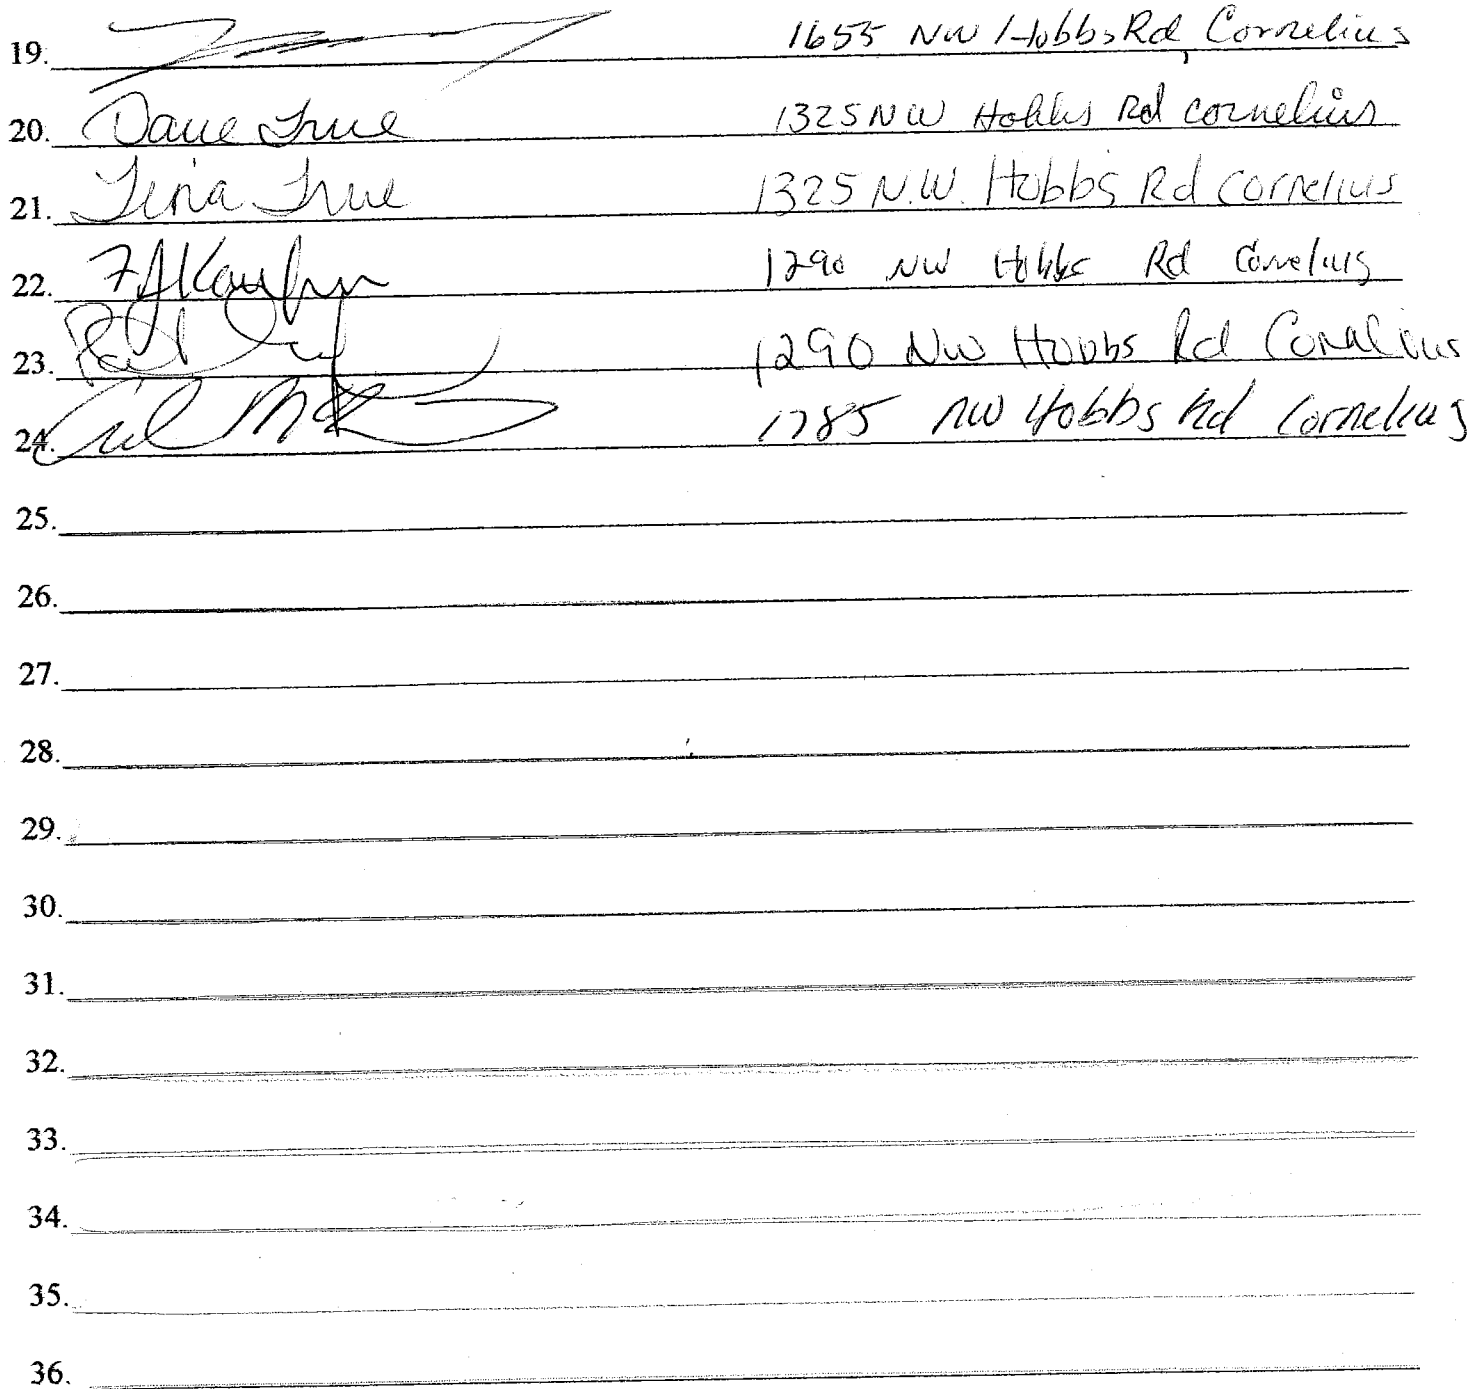 19. 1655 NW Hobbs Rd, Cornelius
20. Dave True 1325 NW Hobbs Rd cornelius
21. Tina True 1325 N.W. Hobbs Rd Cornelius
22. 1290 NW Hobbs Rd Cornelius
23. 1290 NW Hobbs Rd Cornelius
24. 1785 NW Hobbs Rd Cornelius
25.
26.
27.
28.
29.
30.
31.
32.
33.
34.
35.
36.